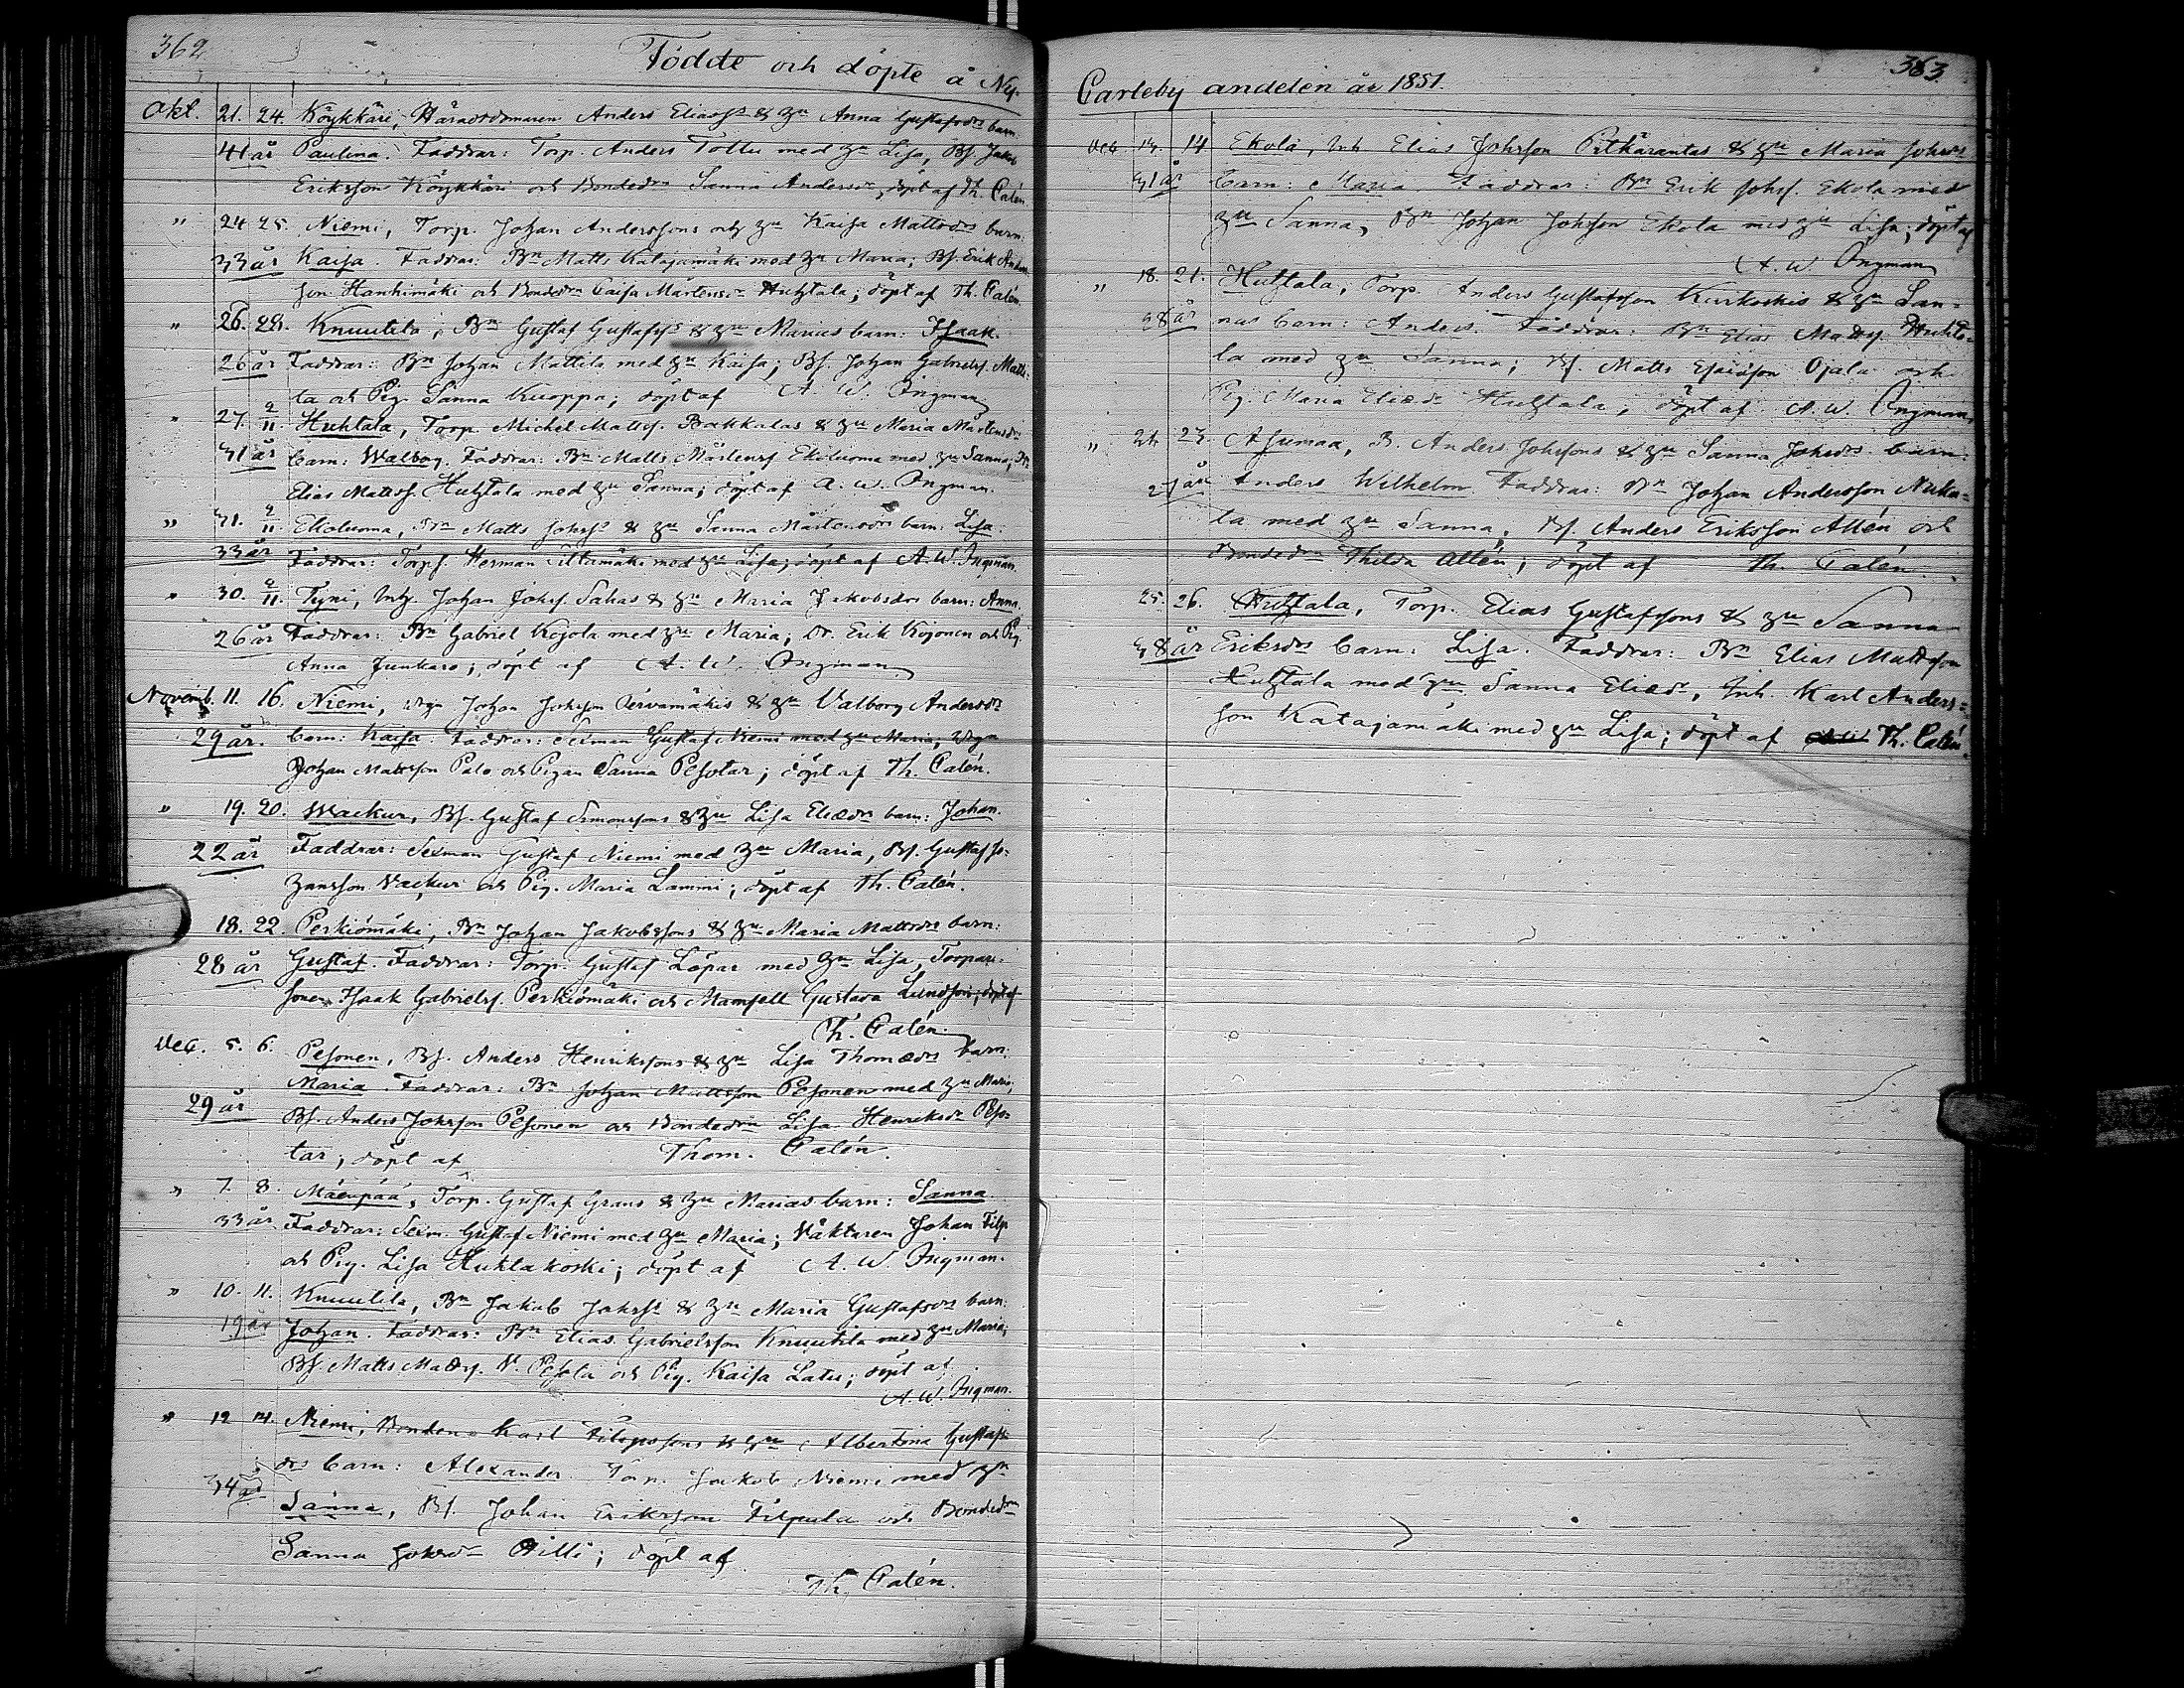 362
Födde och döpte å Ny-
Okt. 21. 24. Köykkäri, Häradsdomaren Anders Eliass. & hu Anna Gustafsdrs barn:
41 år Paulina. Faddrar: Torp. Anders Tottu med hu Lisa, Bs. Jakob
Eriksson Köykkäri och Bondedrn Sanna Andersdr, döpt af Th. Calén
" 24 25. Niemi, Torp. Johan Anderssons och hu Kaisa Mattsdrs barn:
33 år Kaisa. Faddrar: Bn Matts Katajamäki med hu Maria; Bs. Erik Anders-
son Hanhimäki och Bondedrn Caisa Mårtensdr Huhtala; döpt af Th. Calén
" 26. 28. Knuutila, Bn Gustaf Gustafss. & hu Marias barn: Isaak.
26 år Faddrar: Bn Johan Mattila med hu Kaisa; Bs. Johan Gabrielss. Matti-
la och Pig. Sanna Kuoppa; döpt af A. W. Ingman
" 27. 2/11. Huhtala, Torp. Michel Mattss. Pakkalas & hu Maria Mårtensdrs
31 år barn: Walborg. Faddrar: Bn Matts Mårtenss. Ekoluoma med hu Sanna; Bn
Elias Mattss. Huhtala med hu Sanna; döpt af A. W. Ingman.
" 31. 2/11. Ekoluoma, Bn Matts Johss. & hu Sanna Mårtensdrs barn: Lisa.
33 år Faddrar: Torps. Herman med hu Lisa; döpt af A. W. Ingman.
" 30. 2/11. Tyni, Inh. Johan Johss. Sahas & hu Maria Jakobsdrs barn: Anna.
26 år Faddrar: Bn Gabriel Kojola med hu Maria; Dr. Erik Kojonen och Pig.
Anna Junkaro; döpt af A. W. Ingman
Novemb. 11. 16. Niemi, Johan Johsson Pervamäkis & hu Valborg Andersdrs
29 år. barn: Kaisa. Faddrar: Sexman Gustaf Niemi med hu Maria;
Johan Mattsson Palo och Pigan Sanna Pesolar; döpt af Th. Calén.
" 19. 20. Wackur, Bs. Gustaf Simonssons & hu Lisa Eliædrs barn: Johan.
22 år Faddrar: Sexman Gustaf Niemi med hu Maria, Bs. Gustaf Jo-
hansson Vackur och Pig. Maria Lammi; döpt af Th. Calén.
18. 22. Perkiömäki, Bn Johan Jakobssons & hu Maria Mattsdrs barn:
28 år Gustaf. Faddrar: Torp. Gustaf Löpar med hu Lisa, Torpare-
sonen Isaak Gabrielss. Perkiömäki och Mamsell Gustava Lundson; döpt af
Th. Calén
Dec. 5. 6. Pesonen, Bs. Anders Henrikssons & hu Lisa Thomædrs barn:
Maria. Faddrar: Bn Johan Mattsson Pesonen med hu Maria,
29 år Bs. Anders Johsson Pesonen och Bondedrn Lisa Henriksdr Peso-
tar; döpt af Thom. Calén.
" 7. 8. Mäenpää, Torp. Gustaf Grans & hu Marias barn: Sanna
33 år Faddrar: Sexm. Gustaf Niemi med hu Maria; Väktaren Johan Filp
och Pig. Lisa Huhtakoski; döpt af A. W. Ingman.
" 10. 11. Knuutila, Bn Jakob Johss. & hu Maria Gustafsdrs barn:
19 år Johan. Faddrar: Bn Elias Gabrielsson Knuutila med hu Maria;
Bs. Matts Mattss. N. Pesola och Pig. Kaisa Latu; döpt af
A. W. Ingman.
" 12 14. Niemi, Bonden Karl Filipssons & hu Albertina Gustafs-
drs barn: Alexander. Torp. Jakob Niemi med hu
34 år Sanna, Bs. Johan Eriksson Filpula och Bondedrn
Sanna Johsdr Pilli; döpt af
Th. Calén.
363
Carleby andelen år 1851.
Dec 13. 14 Ekola, Inh. Elias Johsson Pitkärantas & hu Maria Johsdrs
31 år barn: Maria. Faddrar: Bn Erik Johss. Ekola med
hu Sanna, Bn Johan Johsson Ekola med hu Lisa; döpt af
A. W. Ingman
" 18. 21. Huhtala, Torp. Anders Gustafsson Kurkoskis & hu San-
28 år nas barn: Anders. Faddrar: Bn Elias Mattss. Huhta-
la med hu Sanna; Bs. Matts Esaiæson Ojala och
Pig. Maria Eliædr Huhtala; döpt af A. W. Ingman
" 21. 23. Asumaa, B. Anders Johssons & hu Sanna Johsdrs barn:
21 år Anders Wilhelm. Faddrar: Bn Johan Andersson Nuka-
la med hu Sanna, Bs. Anders Eriksson Allén och
Bondedrn Thilda Allén; döpt af Th. Calén.
25. 26. Huhtala, Torp. Elias Gustafssons & hu Sanna
38 år Eriksdrs barn: Lisa. Faddrar: Bn Elias Mattsson
Huhtala med hu Sanna Eliædr, Inh. Karl Anders-
son Katajamäki med hu Lisa; döpt af Th. Calén.